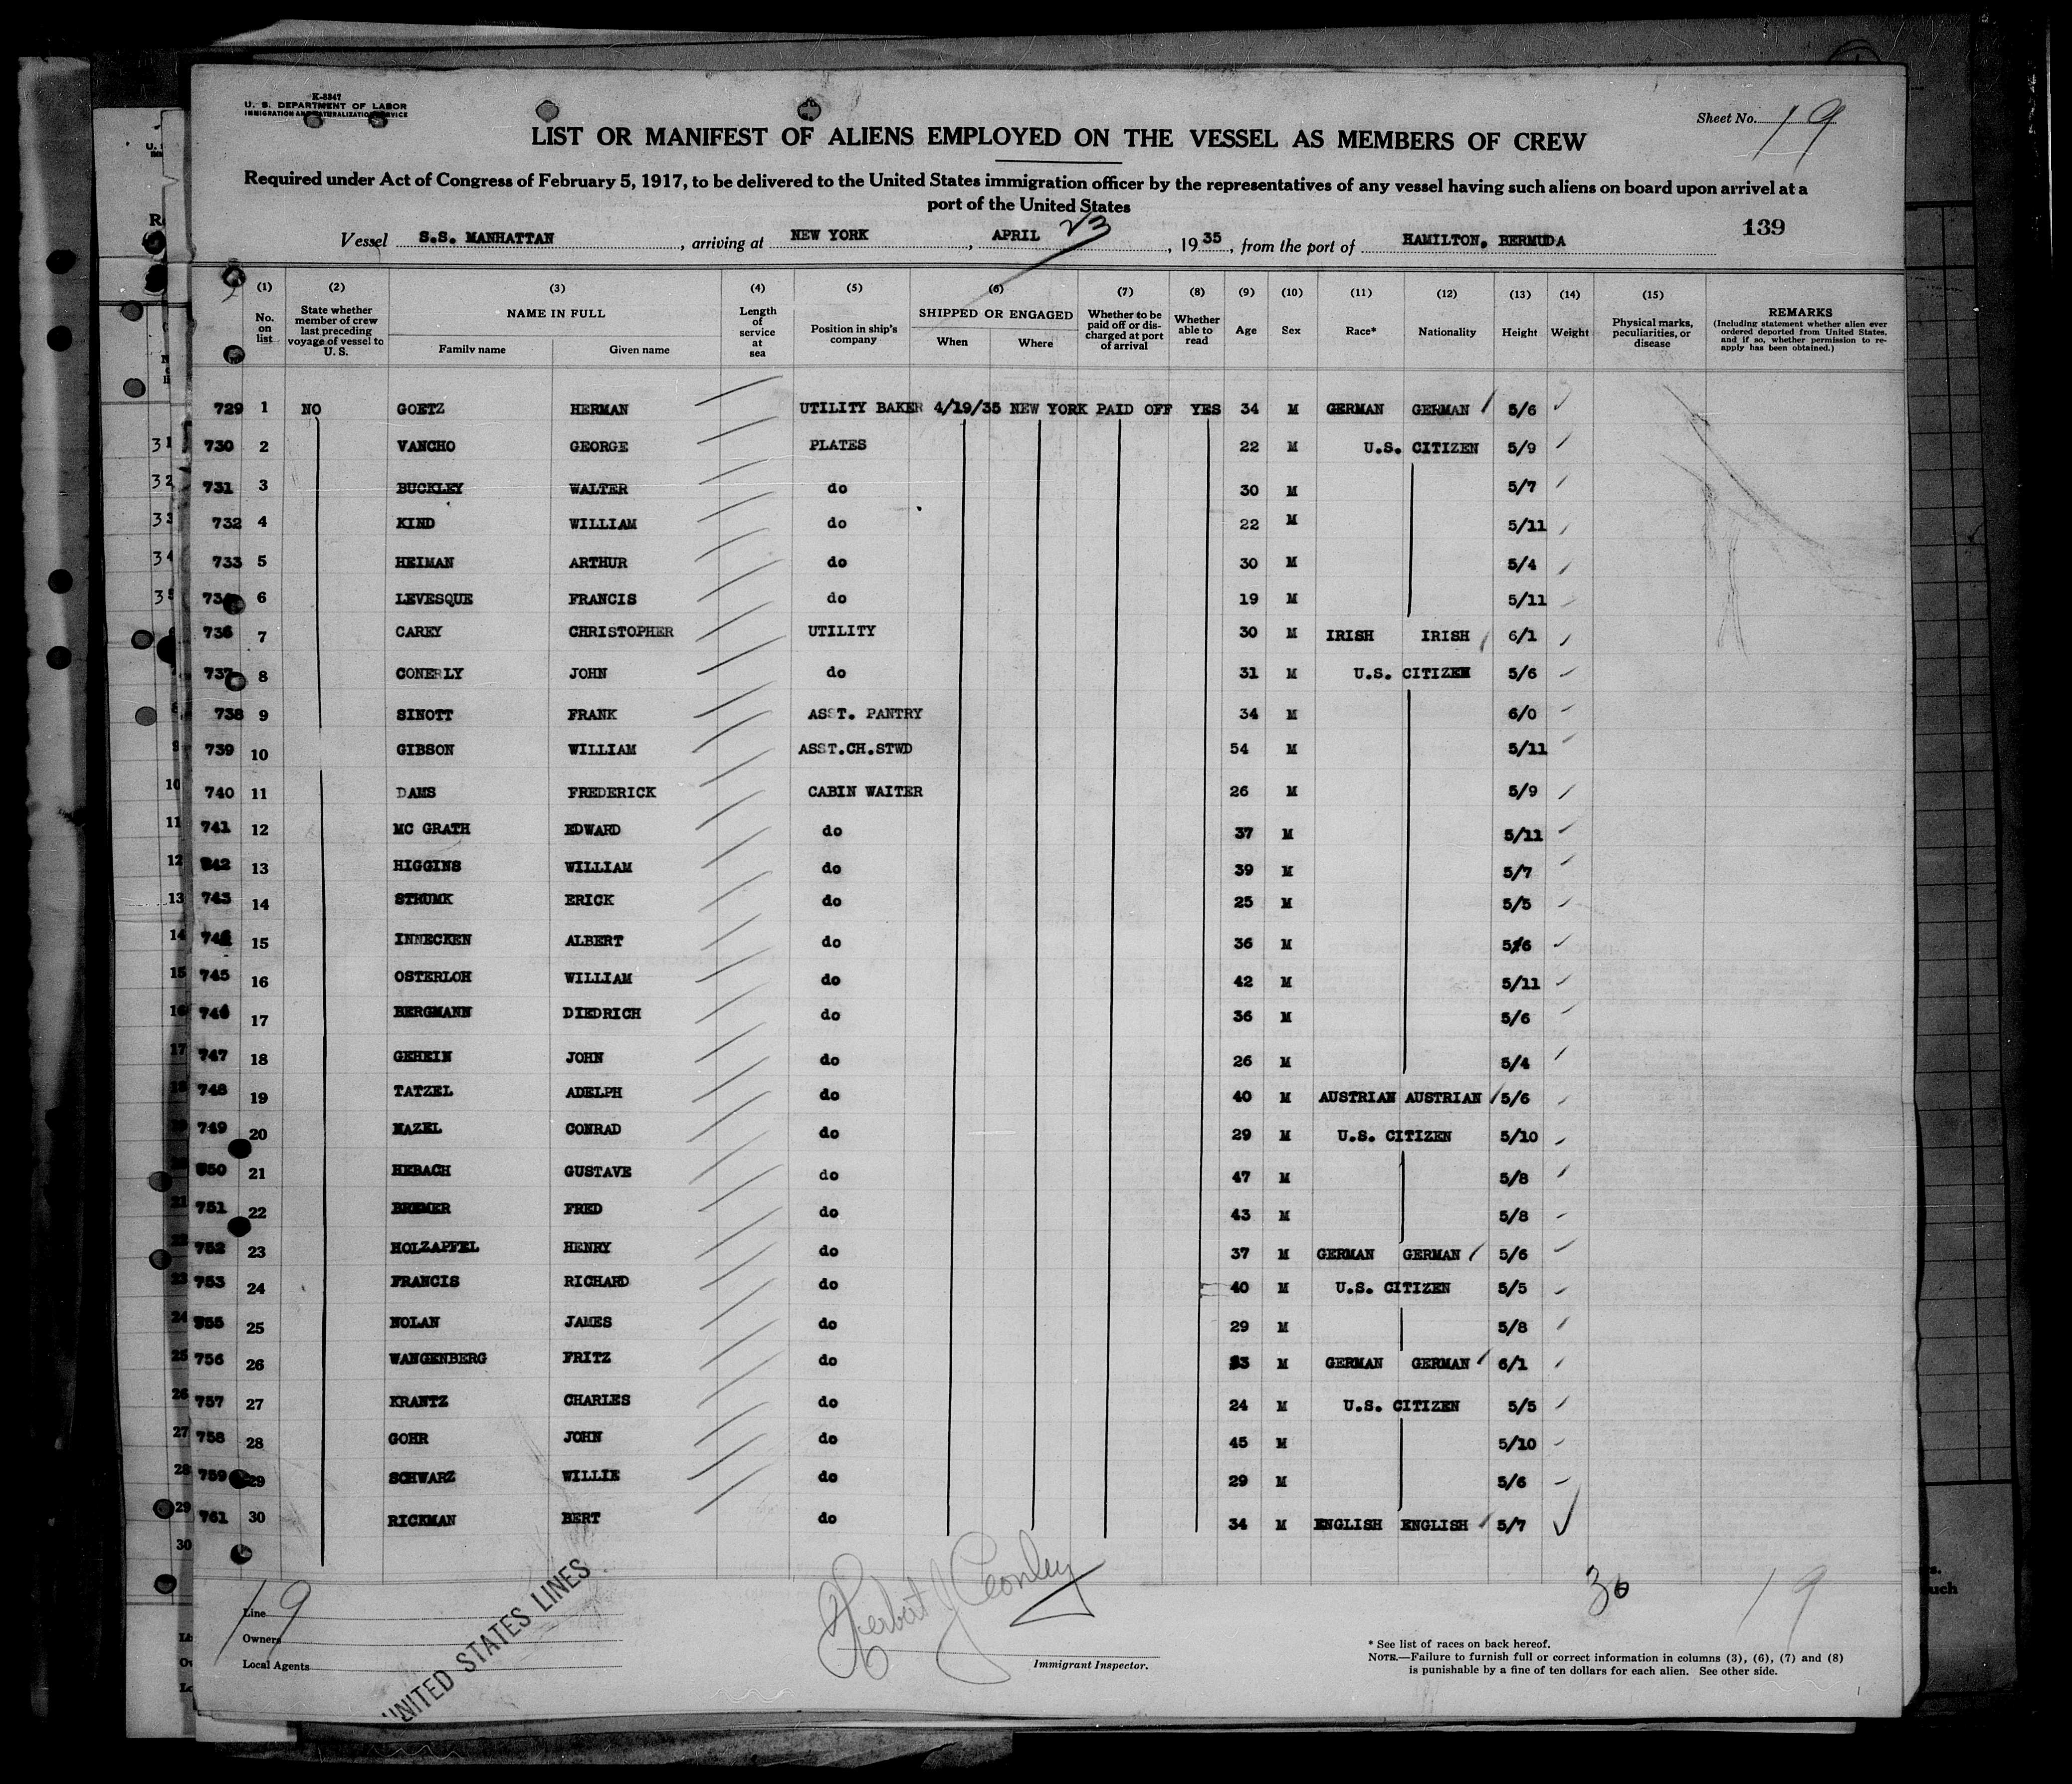 K-8347
U. S. DEPARTMENT OF LABOR
IMMIGRATION AND NATURALIZATION SERVICE
Sheet No. 19
LIST OR MANIFEST OF ALIENS EMPLOYED ON THE VESSEL AS MEMBERS OF CREW
Required under Act of Congress of February 5, 1917, to be delivered to the United States immigration officer by the representatives of any vessel having such aliens on board upon arrival at a
port of the United States
139
Vessel S.S. MANHATTAN, arriving at NEW YORK, APRIL 23, 1935, from the port of HAMILTON, BERMUDA
(1) No. on list (2) State whether member of crew last preceding voyage of vessel to U. S. (3) NAME IN FULL Family name Given name (4) Length of service at sea (5) Position in ship's company (6) SHIPPED OR ENGAGED When Where (7) Whether to be paid off or discharged at port of arrival (8) Whether able to read (9) Age (10) Sex (11) Race* (12) Nationality (13) Height (14) Weight (15) Physical marks, peculiarities, or disease REMARKS (Including statement whether alien ever ordered deported from United States, and if so, whether permission to re-apply has been obtained.)
729 1 NO GOETZ HERMAN UTILITY BAKER 4/19/35 NEW YORK PAID OFF YES 34 M GERMAN GERMAN 5/6
730 2 VANCHO GEORGE PLATES 22 M U.S. CITIZEN 5/9
731 3 BUCKLEY WALTER do 30 M 5/7
732 4 KIND WILLIAM do 22 M 5/11
733 5 HEIMAN ARTHUR do 30 M 5/4
6 LEVESQUE FRANCIS do 19 M 5/11
736 7 CAREY CHRISTOPHER UTILITY 30 M IRISH IRISH 6/1
737 8 CONERLY JOHN do 31 M U.S. CITIZEN 5/6
738 9 SINOTT FRANK ASST. PANTRY 34 M 6/0
739 10 GIBSON WILLIAM ASST.CH.STWD 54 M 5/11
740 11 DAMS FREDERICK CABIN WAITER 26 M 5/9
741 12 MC GRATH EDWARD do 37 M 5/11
13 HIGGINS WILLIAM do 39 M 5/7
743 14 STRUMK ERICK do 25 M 5/5
15 INNECKEN ALBERT do 36 M 5/6
745 16 OSTERLOH WILLIAM do 42 M 5/11
746 17 BERGMANN DIEDRICH do 36 M 5/6
747 18 GEHEIN JOHN do 26 M 5/4
748 19 TATZEL ADELPH do 40 M AUSTRIAN AUSTRIAN 5/6
749 20 CONRAD do 29 M U.S. CITIZEN 5/10
21 HEBACH GUSTAVE do 47 M 5/8
751 22 BREMER FRED do 43 M 5/8
752 23 HOLZAPFEL HENRY do 37 M GERMAN GERMAN 5/6
753 24 FRANCIS RICHARD do 40 M U.S. CITIZEN 5/5
25 NOLAN JAMES do 29 M 5/8
756 26 WANGENBERG FRITZ do M GERMAN GERMAN 6/1
757 27 KRANTZ CHARLES do 24 M U.S. CITIZEN 5/5
758 28 GOHR JOHN do 45 M 5/10
759 29 SCHWARZ WILLIE do 29 M 5/6
761 30 RICKMAN BERT do 34 M ENGLISH ENGLISH 5/7
30 19
19
Line
Owners
Local Agents
UNITED STATES LINES
Herbert J Conley
Immigrant Inspector.
* See list of races on back hereof.
NOTE.—Failure to furnish full or correct information in columns (3), (6), (7) and (8)
is punishable by a fine of ten dollars for each alien. See other side.